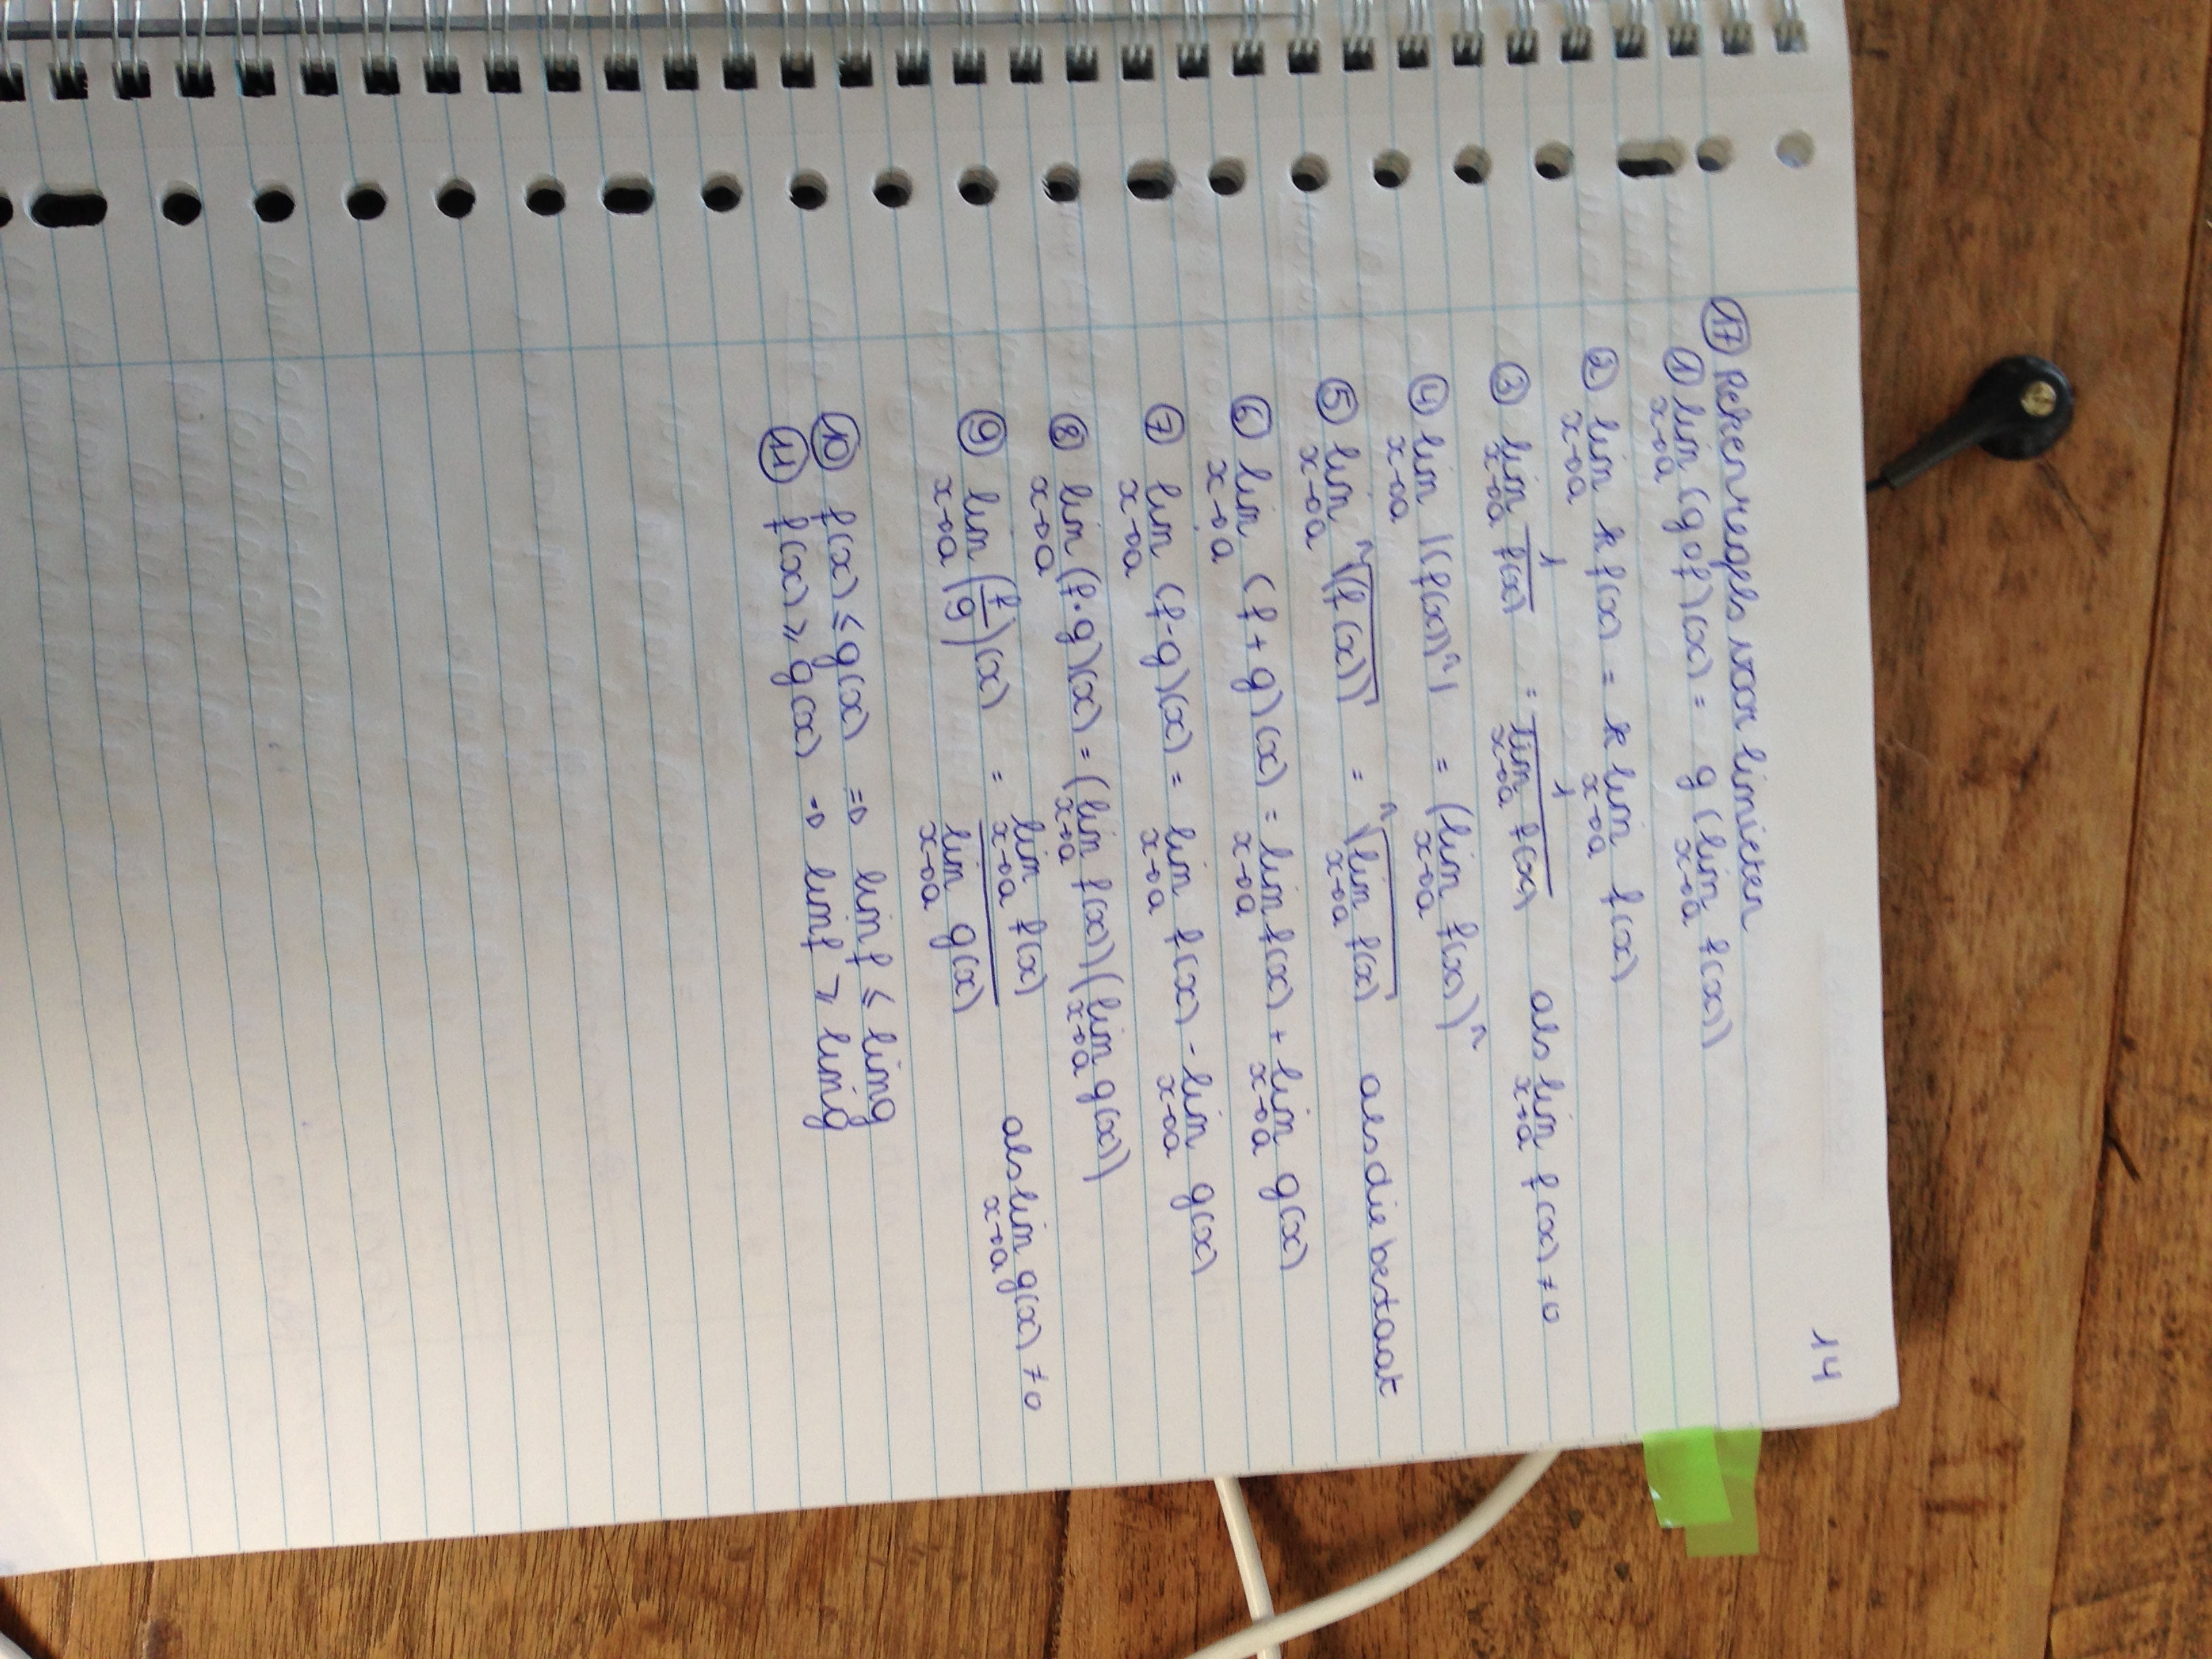 14
⑰ Rekenregels voor limieten
① lim x→a (g∘f)(x) = g(lim x→a f(x))
② lim x→a k f(x) = k lim x→a f(x)
③ lim x→a 1/f(x) = 1/(lim x→a f(x)) als lim x→a f(x) ≠ 0
④ lim x→a |(f(x))ⁿ| = (lim x→a f(x))ⁿ
⑤ lim x→a ⁿ√(f(x)) = ⁿ√(lim x→a f(x)) als die bestaat
⑥ lim x→a (f+g)(x) = lim x→a f(x) + lim x→a g(x)
⑦ lim x→a (f-g)(x) = lim x→a f(x) - lim x→a g(x)
⑧ lim x→a (f·g)(x) = (lim x→a f(x))(lim x→a g(x))
⑨ lim x→a (f/g)(x) = lim x→a f(x) / lim x→a g(x) als lim x→a g(x) ≠ 0
⑩ f(x) ≤ g(x) ⇒ lim f ≤ lim g
⑪ f(x) ≥ g(x) ⇒ lim f ≥ lim g